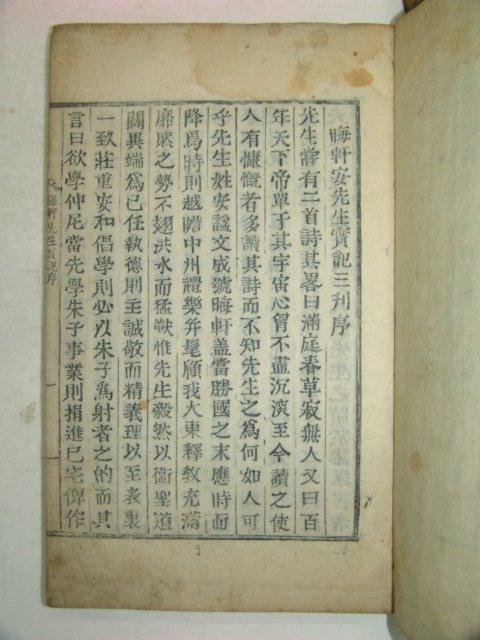 晦軒安先生實記三刋序
先生嘗有二首詩其畧曰滿庭春草寂無人又曰百
年天下帝單于其宇宙心胷不盡沉淚至今讀之使
人有慷慨者多讀其詩而不知先生之爲何如人可
乎先生姓安謚文成號晦軒盖當勝國之末應時而
降焉時則越瞻中州禮樂弁髦顧我大東釋敎充滿
靡然之勢不翅洪水而猛獸惟先生毅然以衛聖道
闢異端爲已任執德則至誠敬而精義理以至表裏
一致莊重安和倡學則必以朱子爲射者之的而其
言曰欲學仲尼當先學朱子事業則捐進已宅俾作
晦軒先生實記序
一